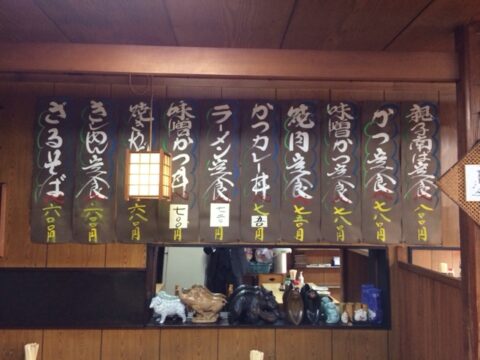 親子南ばん定食 八〇〇円
かつ定食 七八〇円
味噌かつ定食 七八〇円
焼肉定食 七五〇円
かつカレー丼 七五〇円
ラーメン定食 七五〇円
味噌かつ丼 七〇〇円
六八〇円
きしめん定食 六〇〇円
ざるそば 六〇〇円